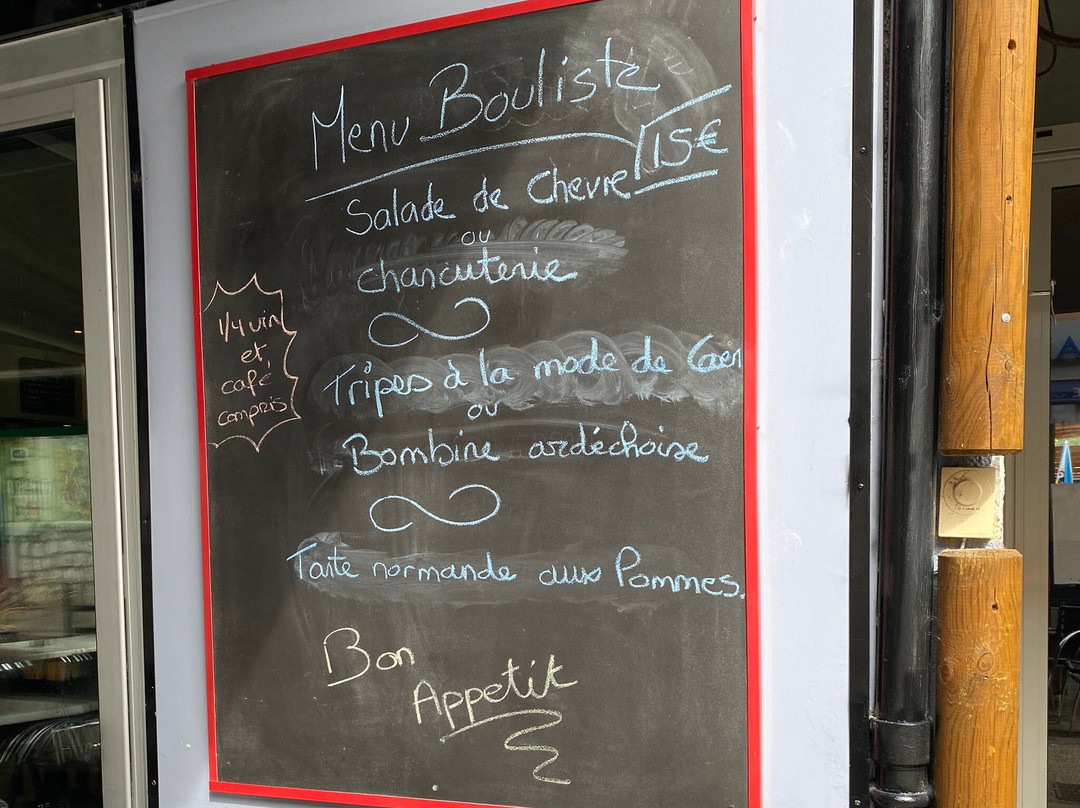 Menu Bouliste
15€
Salade de chevre
ou
charcuterie
1/4 vin
et
café
compris
Tripes à la mode de Caen
ou
Bombine ardéchoise
Tarte normande aux Pommes.
Bon
Appetit